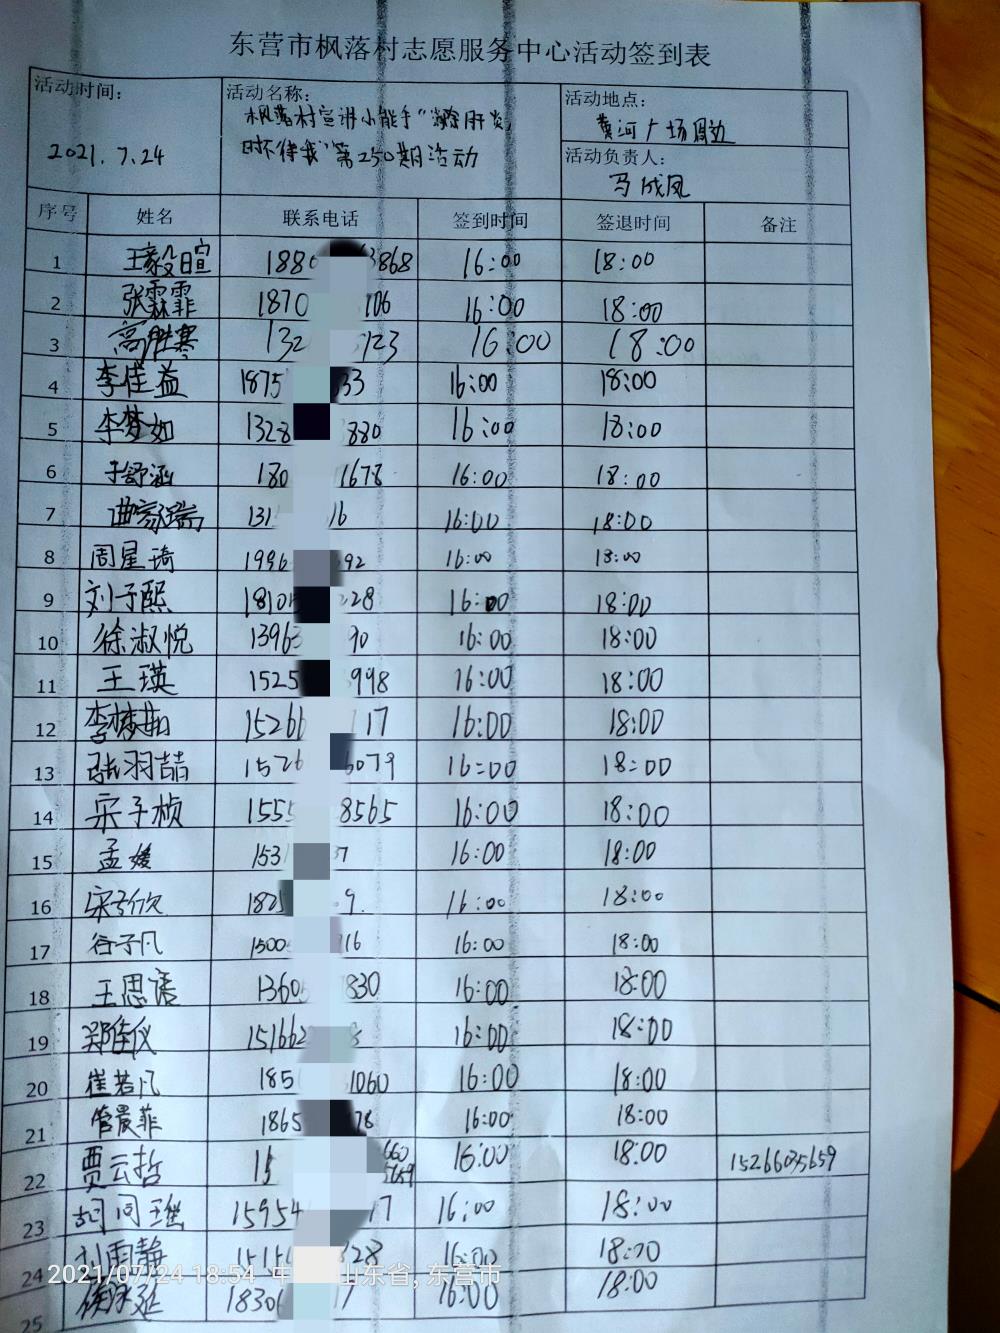 东营市枫落村志愿服务中心活动签到表
活动时间： 2021.7.24
活动名称： 枫落村宣讲小能手“消除肝炎，
时不待我”第250期活动
活动地点： 黄河广场周边
活动负责人： 马成凤
序号 姓名 联系电话 签到时间 签退时间 备注
1 王毅暄 188 3868 16:00 18:00
2 张霖霏 1870 106 16:00 18:00
3 高胜寒 132 723 16:00 18:00
4 李佳益 1875 33 16:00 18:00
5 李梦如 1328 880 16:00 18:00
6 于舒涵 180 1678 16:00 18:00
7 曲家瑞 131 16 16:00 18:00
8 周星琦 1996 92 16:00 18:00
9 刘子熙 1810 228 16:00 18:00
10 徐淑悦 13963 90 16:00 18:00
11 王瑛 1525 998 16:00 18:00
12 李梦如 15266 17 16:00 18:00
13 张羽喆 1526 6079 16:00 18:00
14 宋子桢 1555 8565 16:00 18:00
15 孟媛 1531 37 16:00 18:00
16 宋子欣 1825 9. 16:00 18:00
17 谷子凡 1500 116 16:00 18:00
18 王思语 1360 830 16:00 18:00
19 郑佳仪 151662 16:00 18:00
20 崔若凡 185 1060 16:00 18:00
21 管晨菲 1865 78 16:00 18:00
22 贾云哲 15 660 16:00 18:00 15266035659
5659
23 胡同瑶 15954 17 16:00 18:00
24 刘雨静 1515 328 16:00 18:00
25 侯咏延 1830 17 16:00 18:00
2021/07/24 18:54 山东省, 东营市